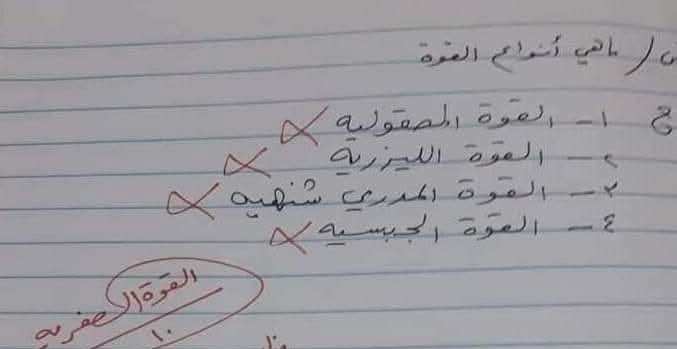 س/ ماهي أنواع القوة
ج ١- القوة المصقولية
٢- القوة الليزرية
٣- القوة المدري شنهيه
٤- القوة الجبسيه
القوة الصفريه
١٠